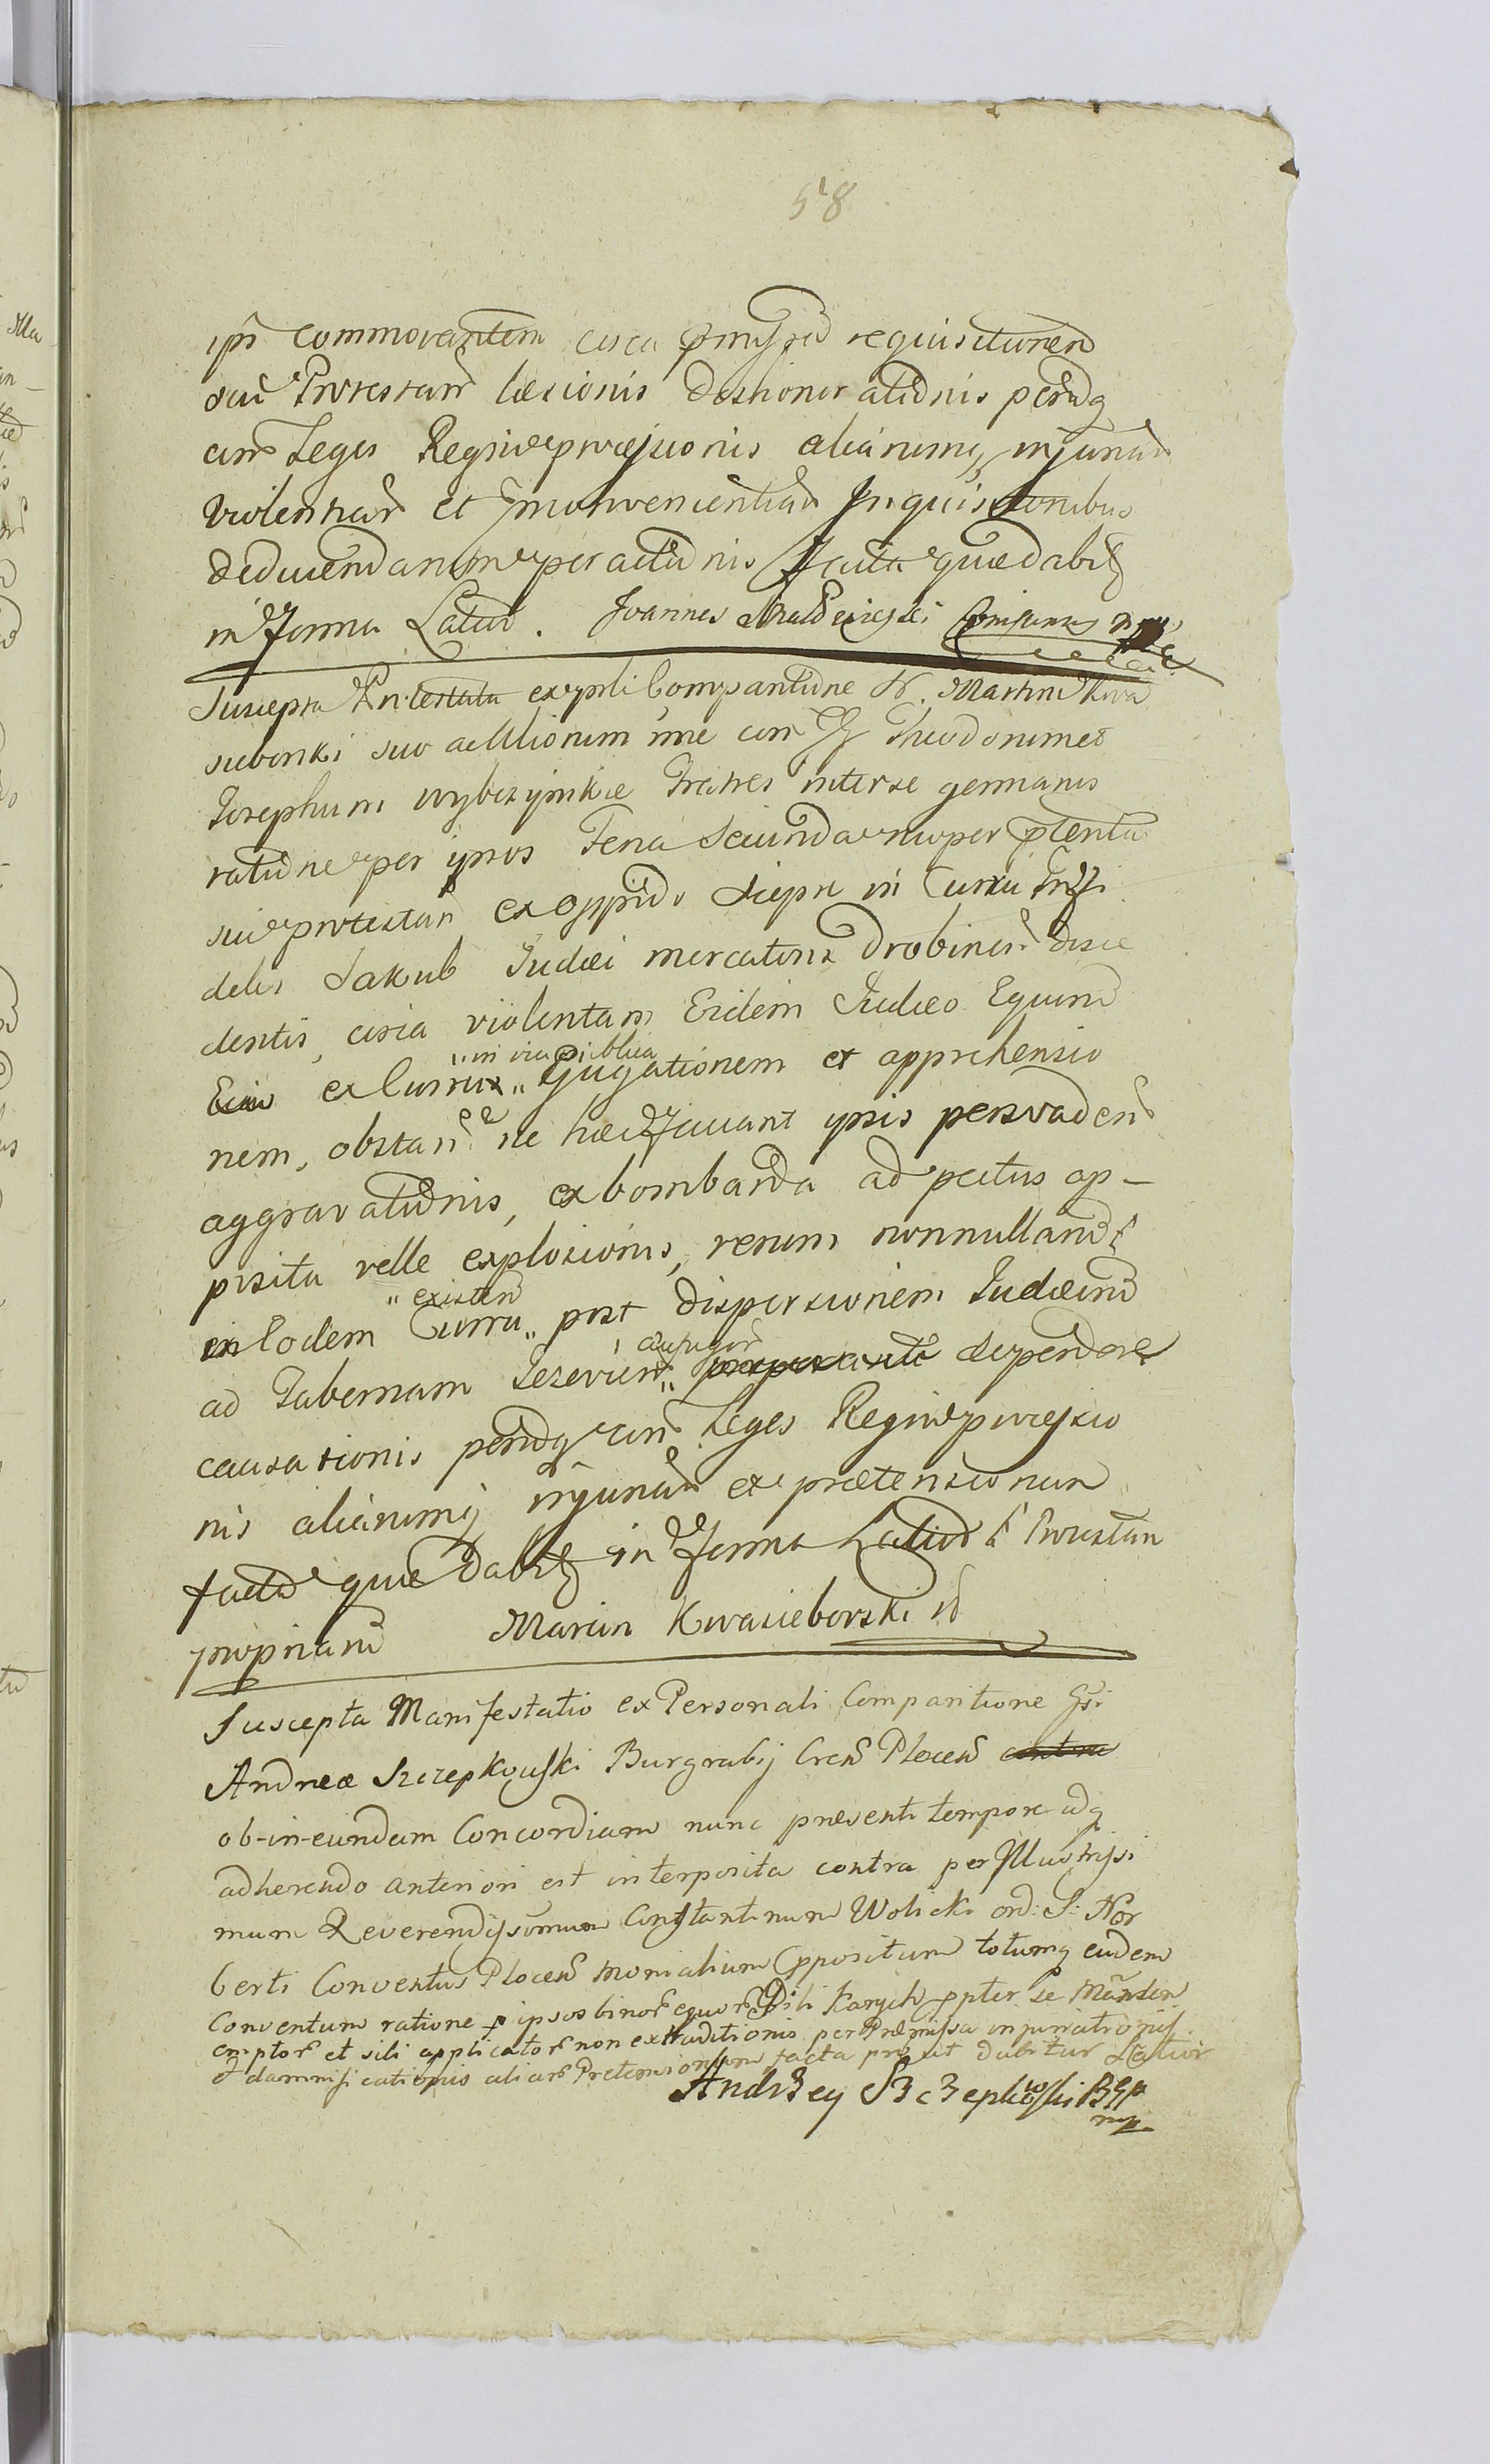 58
ipm commorantem circa pmissa requisitionem
sui Protestans læsionis deshonorationis pænarq
con Leges Regni expressionis aliarumq injuriar
violentiar et inconvenientiar Inquisitionibus
deducendarum peractionis facta quæ dabitr
in forma Latiori. Joannes
Suscepta Protestatio ex psli Comparitione N. Martini Kwa
sieborski suo ac Illiorum nne con Gg Theodorum et
Josephum Wybczynskie Fratres inter se germanos
ratione per ipsos Feria Secunda nuper ptenta
sui protestan ex oppido Sieprc in Curru Infi
delis Jakub Judæi mercatoris Drobinen disce
dentis, circa violentam Eidem Judæo Equum
Eius ex Curru „ „in via publica Ejugationem et apprehensio
nem, obstan ne hæc facerent ipsis persvaden
aggravationis, ex bombarda ad pectus op-
posita velle explosionis, rerum nonnullarum
in Eodem Curru „ „existen post dispersionem Judæum
ad Tabernam Jezewien „ aufugien deperdorum
causationis pænarq con Leges Regni expressio
nis aliarumq injuriar et prætensionum
facta quæ dabitr in forma Latiori Protestan
propriam Marcin Kwasieborski
Suscepta Manifestatio ex Personali Comparitione Gsi
Andreæ Szczepkowski Burgrabij Cren Plocen contra
ob-in-eundam Concordiam nunc præsenti tempore adq
adherendo anteriori est interposita contra per Illustrissi
mum Reverendissimum Constantinum Wolicki ord: S: Nor
berti Conventus Plocen Monialium Ppositum totumq eudem
Conventum ratione p ipsos binor equor Pili Karych ppter Se Manten
emptor et sili applicator non extraditionis per Præmissa injuriationis
& damnificationis aliarum Pretensionum facta pro ut dabitur Latior
Andrzey Szczepkowski BGP
mp